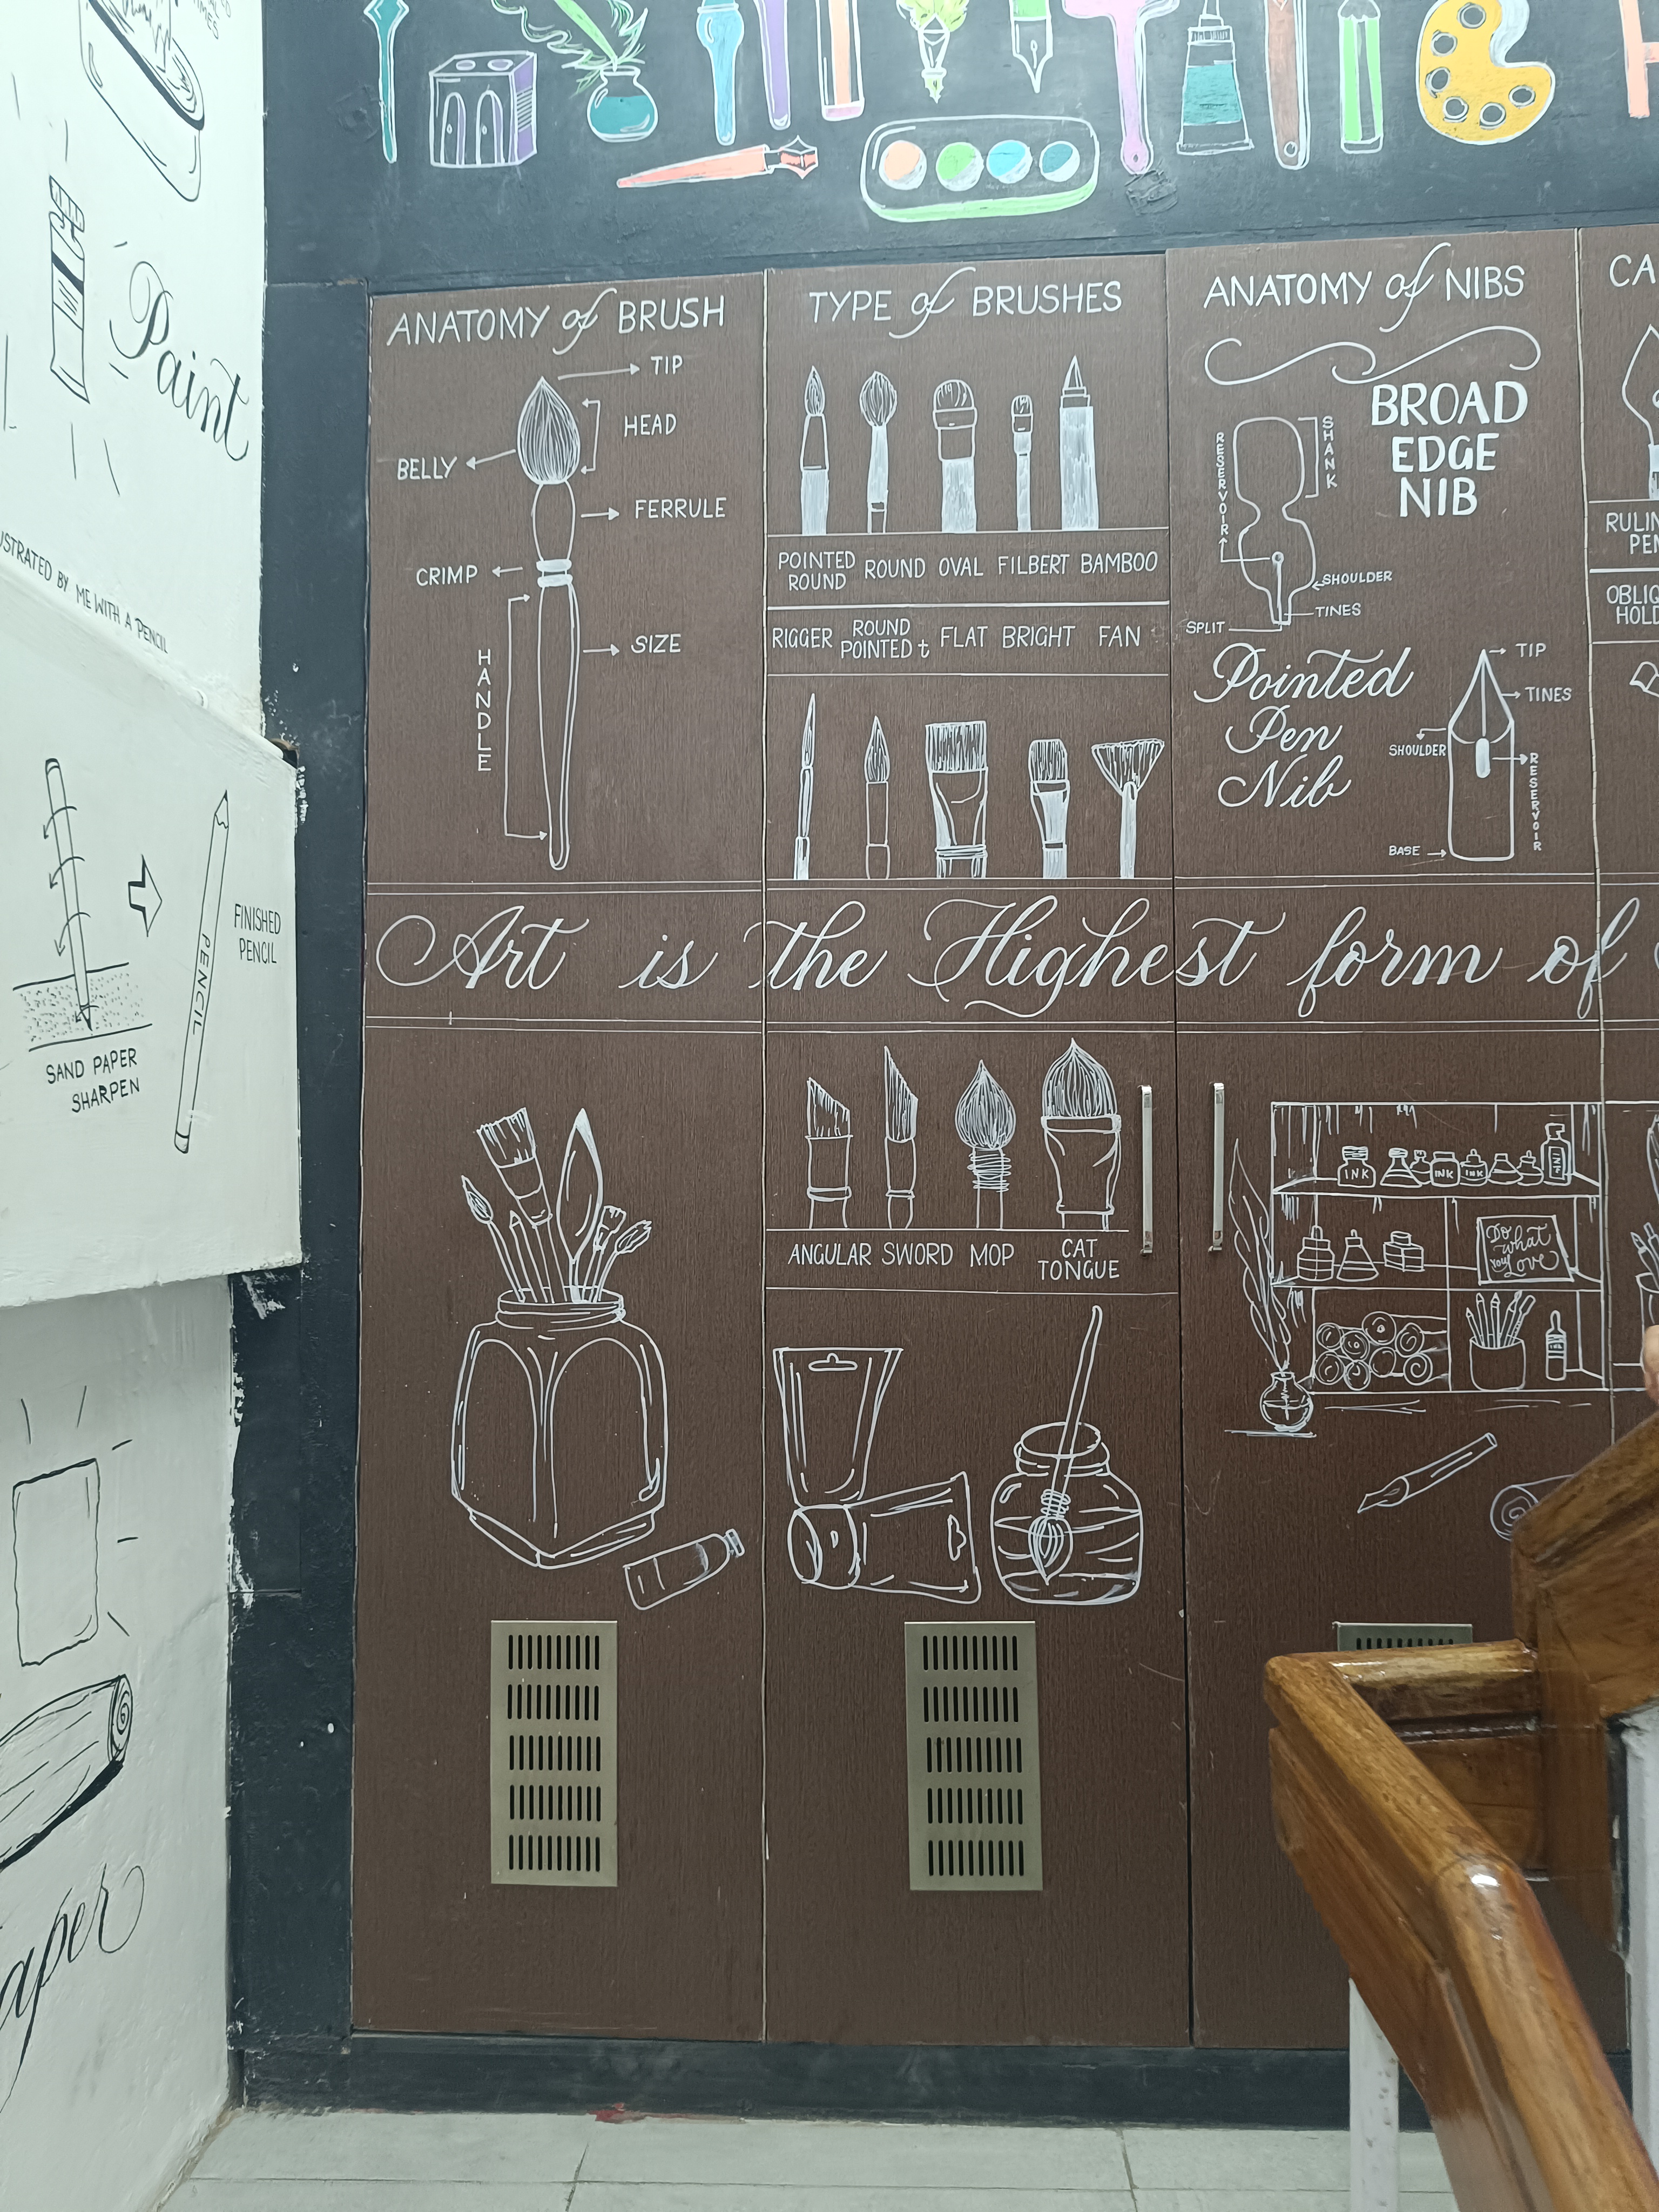 Paint
ILLUSTRATED BY ME WITH A PENCIL
SAND PAPER
SHARPEN
PENCIL
FINISHED
PENCIL
ANATOMY of BRUSH
TIP
HEAD
BELLY
FERRULE
CRIMP
SIZE
HANDLE
TYPE of BRUSHES
POINTED
ROUND
ROUND
OVAL
FILBERT
BAMBOO
RIGGER
ROUND
POINTED t
FLAT
BRIGHT
FAN
ANATOMY of NIBS
BROAD
EDGE
NIB
RESERVOIR
SHANK
SHOULDER
TINES
SPLIT
Pointed
Pen
Nib
TIP
TINES
SHOULDER
RESERVOIR
BASE
CA
RULIN
PEN
OBLIQ
HOLD
Art is the Highest form of
ANGULAR
SWORD
MOP
CAT
TONGUE
INK
INK
INK
INK
Do
what
you
Love
aper